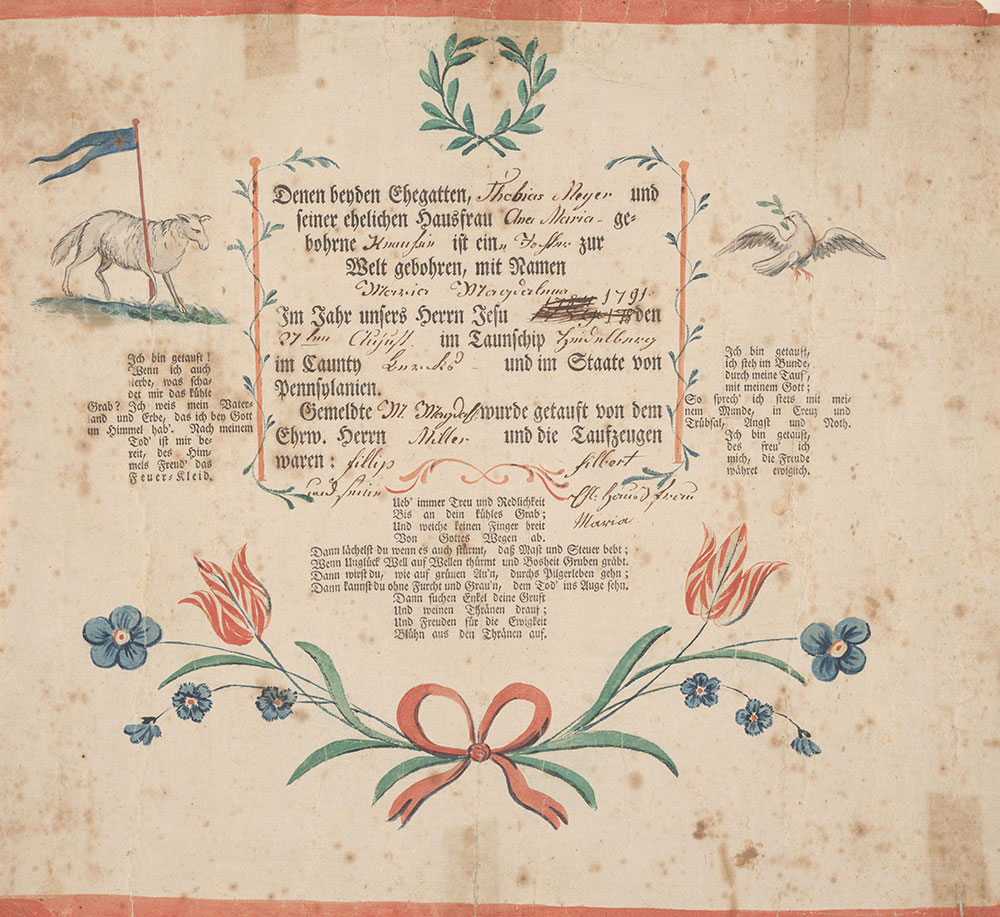 Denen beyden Ehegatten, Thobias Meyer und
seiner ehelichen Hausfrau Ana Maria ge-
bohrne ist ein Tochter zur
Welt gebohren, mit Namen
Maria Magdalena
Im Jahr unsers Herrn Jesu 1791 den
27ten August im Taunschip Heidelberg
im Caunty Bercks und im Staate von
Pennsylanien.
Gemeldte M. wurde getauft von dem
Ehrw. Herrn Miller und die Taufzeugen
waren: fillip filbert
und seine Eh. Hausfrau
Maria
Ich bin getauft!
Wenn ich auch
sterbe, was scha-
det mir das kühle
Grab? Ich weis mein Vater-
land und Erbe, das ich bey Gott
im Himmel hab'. Nach meinem
Tod' ist mir be-
reit, des Him-
mels Freud' das
Feuer-Kleid.
Ich bin getauft,
ich steh im Bunde,
durch meine Tauf',
mit meinem Gott:
So sprech' ich stets mit mei-
nem Munde, in Creuz und
Trübsal, Angst und Noth.
Ich bin getauft,
des freu' ich
mich, die Freude
währet ewiglich.
Ueb' immer Treu und Redlichkeit
Bis an dein kühles Grab;
Und weiche keinen Finger breit
Von Gottes Wegen ab.
Dann lächelst du wenn es auch stürmt, daß Mast und Steuer bebt;
Wenn Unglück Well auf Wellen thürmt und Bosheit Gruben gräbt.
Dann wirst du, wie auf grünen Au'n, durchs Pilgerleben gehn;
Dann kannst du ohne Furcht und Grau'n, dem Tod' ins Auge sehn.
Dann suchen Enkel deine Gruft
Und weinen Thränen drauf;
Und Freuden für die Ewigkeit
Blühn aus den Thränen auf.